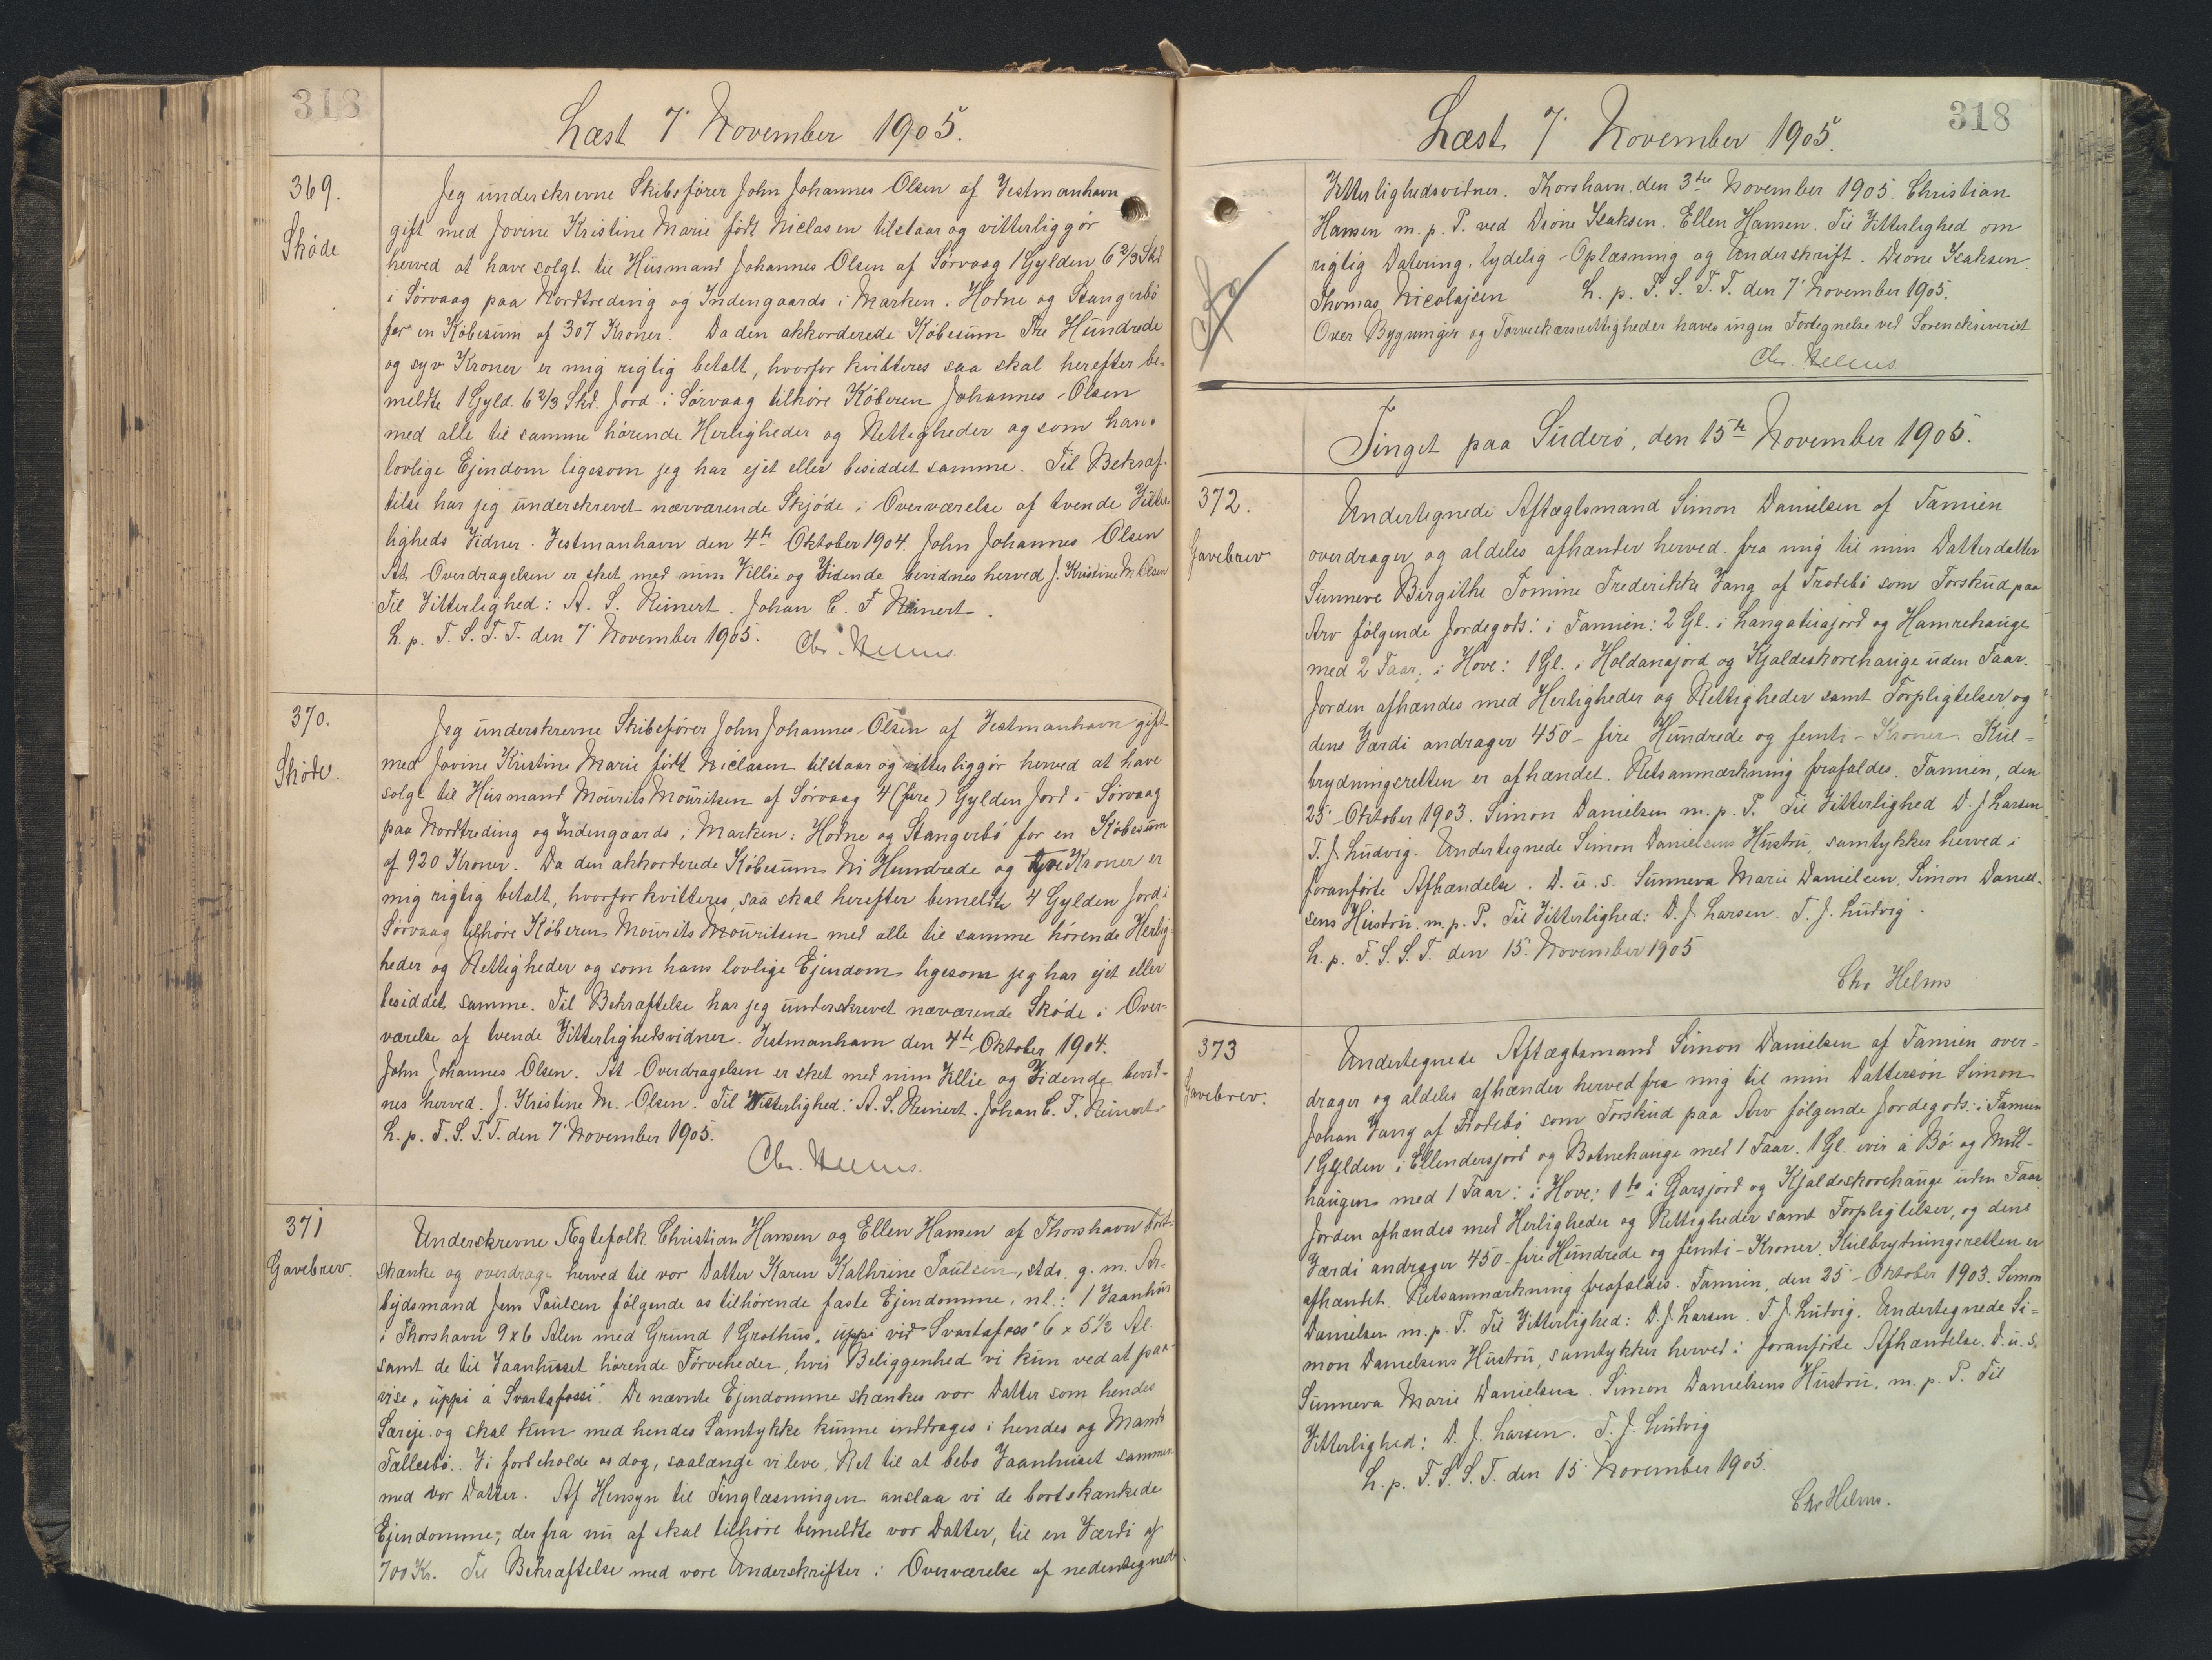 318
Læst 7' November 1905.
369.
Skøde
Jeg underskrevne Skibsfører John Johannes Olsen af Vestmanhavn
gift med Jovine Kristine Marie født Niclasen tilstaar og vitterliggør
herved at have solgt til Husmand Johannes Olsen af Sørvaag 1 Gylden 6 2/3 Skd
i Sørvaag paa Nordtreding og Indengaards i Marken. Horne og Stangerbø
for en Købesum af 307 Kroner. Da den akkorderede Købesum Tre Hundrede
og syv Kroner er mig rigtig betalt, hvorfor kvitteres saa skal herefter be-
meldte 1 Gyld. 6 2/3 Skd. Jord i Sørvaag tilhøre Køberen Johannes Olsen
med alle til samme hørende Herligheder og Rettigheder og som hans
lovlige Ejendom ligesom jeg har ejet eller besiddet samme. Til Bekræf-
telse har jeg underskrevet nærværende Skjøde i Overværelse af tvende Vitter-
ligheds Vidner. Vestmanhavn den 4de Oktober 1904. John Johannes Olsen
At Overdragelsen er sket med min Villie og Vidende bevidnes herved J. Kristine M. Olsen
Til Vitterlighed: A. S. Reinert. Johan C. F Reinert.
L. p. F. S. T. T. den 7' November 1905. Chr. Helms
370.
Skøde.
Jeg underskrevne Skibsfører John Johannes Olsen af Vestmanhavn gift
med Jovine Kristine Marie født Niclasen tilstaar og vitterliggør herved at have
solgt til Husmand Mourits Mouritsen af Sørvaag 4 (fire) Gylden Jord i Sørvaag
paa Nordtreding og Indengaards i Marken: Horne og Stangerbø for en Købesum
af 920 Kroner. Da den akkorderede Købesum Ni Hundrede og tyve Kroner er
mig rigtig betalt, hvorfor kvitteres, saa skal herefter bemeldte 4 Gylden Jord i
Sørvaag tilhøre Køberen Mourits Mouritsen med alle til samme hørende Herlig-
heder og Rettigheder og som hans lovlige Ejendom ligesom jeg har ejet eller
besiddet samme. Til Bekræftelse har jeg underskrevet nærværende Skøde i Over-
værelse af tvende Vitterlighedsvidner. Vestmanhavn den 4de Oktober 1904.
John Johannes Olsen. At Overdragelsen er sket med min Villie og Vidende bevid-
nes herved. J. Kristine M. Olsen. Til Vitterlighed: A. S. Reinert. Johan C. F. Reinert
L. p. F. S. T. T. den 7' November 1905.
Chr. Helms.
371
Gavebrev.
Underskrevne Ægtefolk Christian Hansen og Ellen Hansen af Thorshavn bort-
skænke og overdrage herved til vor Datter Karen Kathrine Paulsen, stds. g. m. Ar-
bejdsmand Jens Paulsen følgende os tilhørende faste Ejendomme, nl.: 1 Vaanhus
i Thorshavn 9 x 6 Alen med Grund 1 Grothus „uppi vid Svartafoss" 6 x 5 1/2 Al.
samt de til Vaanhuset hørende Tørveheder, hvis Beliggenhed vi kun ved at paa-
vise „uppi á Svartafossi". De nævnte Ejendomme skænkes vor Datter som hendes
Særeje og skal kun med hendes Samtykke kunne inddrages i hendes og Mands
Fællesbo. Vi forbeholde os dog, saalænge vi leve, Ret til at bebo Vaanhuset sammen
med vor Datter. Af Hensyn til Tinglæsningen anslaa vi de bortskænkede
Ejendomme, der fra nu af skal tilhøre bemeldte vor Datter, til en Værdi af
700 Kr. Til Bekræftelse med vore Underskrifter i Overværelse af nedentegnede
318
Læst 7' November 1905.
Vitterlighedsvidner. Thorshavn, den 3die November 1905. Christian
Hansen m. p. P. ved Dione Isaksen. Ellen Hansen. Til Vitterlighed om
rigtig Datering, lydelig Oplæsning og Underskrift. Dione Isaksen.
Thomas Nicolajsen L. p. F. S. T. T. den 7' November 1905.
Over Bygninger og Tørveskærsrettigheder haves ingen Fortegnelse ved Sorenskriveriet
Chr. Helms
Tinget paa Suderø, den 15de November 1905.
372.
Gavebrev
Undertegnede Aftægtsmand Simon Danielsen af Famien
overdrager og aldeles afhænder herved fra mig til min Datterdatter
Sunneve Birgithe Tomine Frederikke Vang af Frodebø som Forskud paa
Arv følgende Jordegods: i Famien: 2 Gl. i Langateiajord og Hamrehauge
med 2 Faar, i Hove: 1 Gl. i Holdanajord og Kjaldeskorehauge uden Faar.
Jorden afhændes med Herligheder og Rettigheder samt Forpligtelser, og
dens Værdi andrager 450 - fire Hundrede og femti - Kroner. Kul-
brydningsretten er afhændet. Retsanmærkning frafaldes. Famien, den
25' Oktober 1903. Simon Danielsen m. p. P. Til Vitterlighed D. J Larsen
T. J. Ludvig. Undertegnede Simon Danielsens Hustru, samtykker herved i
foranførte Afhændelse. D. u. s. Sunneva Marie Danielsen, Simon Daniel-
sens Hustru, m. p. P. Til Vitterlighed: D. J. Larsen. T. J. Ludvig.
L. p. F. S. S. T. den 15' November 1905
Chr Helms
373
Gavebrev.
Undertegnede Aftægtsmand Simon Danielsen af Famien over-
drager og aldeles afhænder herved fra mig til min Dattersøn Simon
Johan Vang af Frodebø som Forskud paa Arv følgende Jordegods: i Famien
1 Gylden i Ellendersjord og Botnehauge med 1 Faar. 1 Gl. ivir á Bø og Mid-
haugen med 1 Faar: i Hove: 1 do i Garsjord og Kjaldeskorehauge uden Faar
Jorden afhændes med Herligheder og Rettigheder samt Forpligtelser, og dens
Værdi andrager 450 - fire Hundrede og femti - Kroner. Kulbrytningsretten er
afhændet. Retsanmærkning frafaldes. Famien, den 25' Oktober 1903. Simon
Danielsen m. p. P. Til Vitterlighed: D. J. Larsen. T. J. Ludvig. Undertegnede Si-
mon Danielsens Hustru, samtykker herved i foranførte Afhændelse. D. u. s.
Sunneva Marie Danielsen. Simon Danielsens Hustru, m. p. P. Til
Vitterlighed: D. J. Larsen. T. J. Ludvig
L. p. F. S. S. T. den 15' November 1905.
Chr Helms.